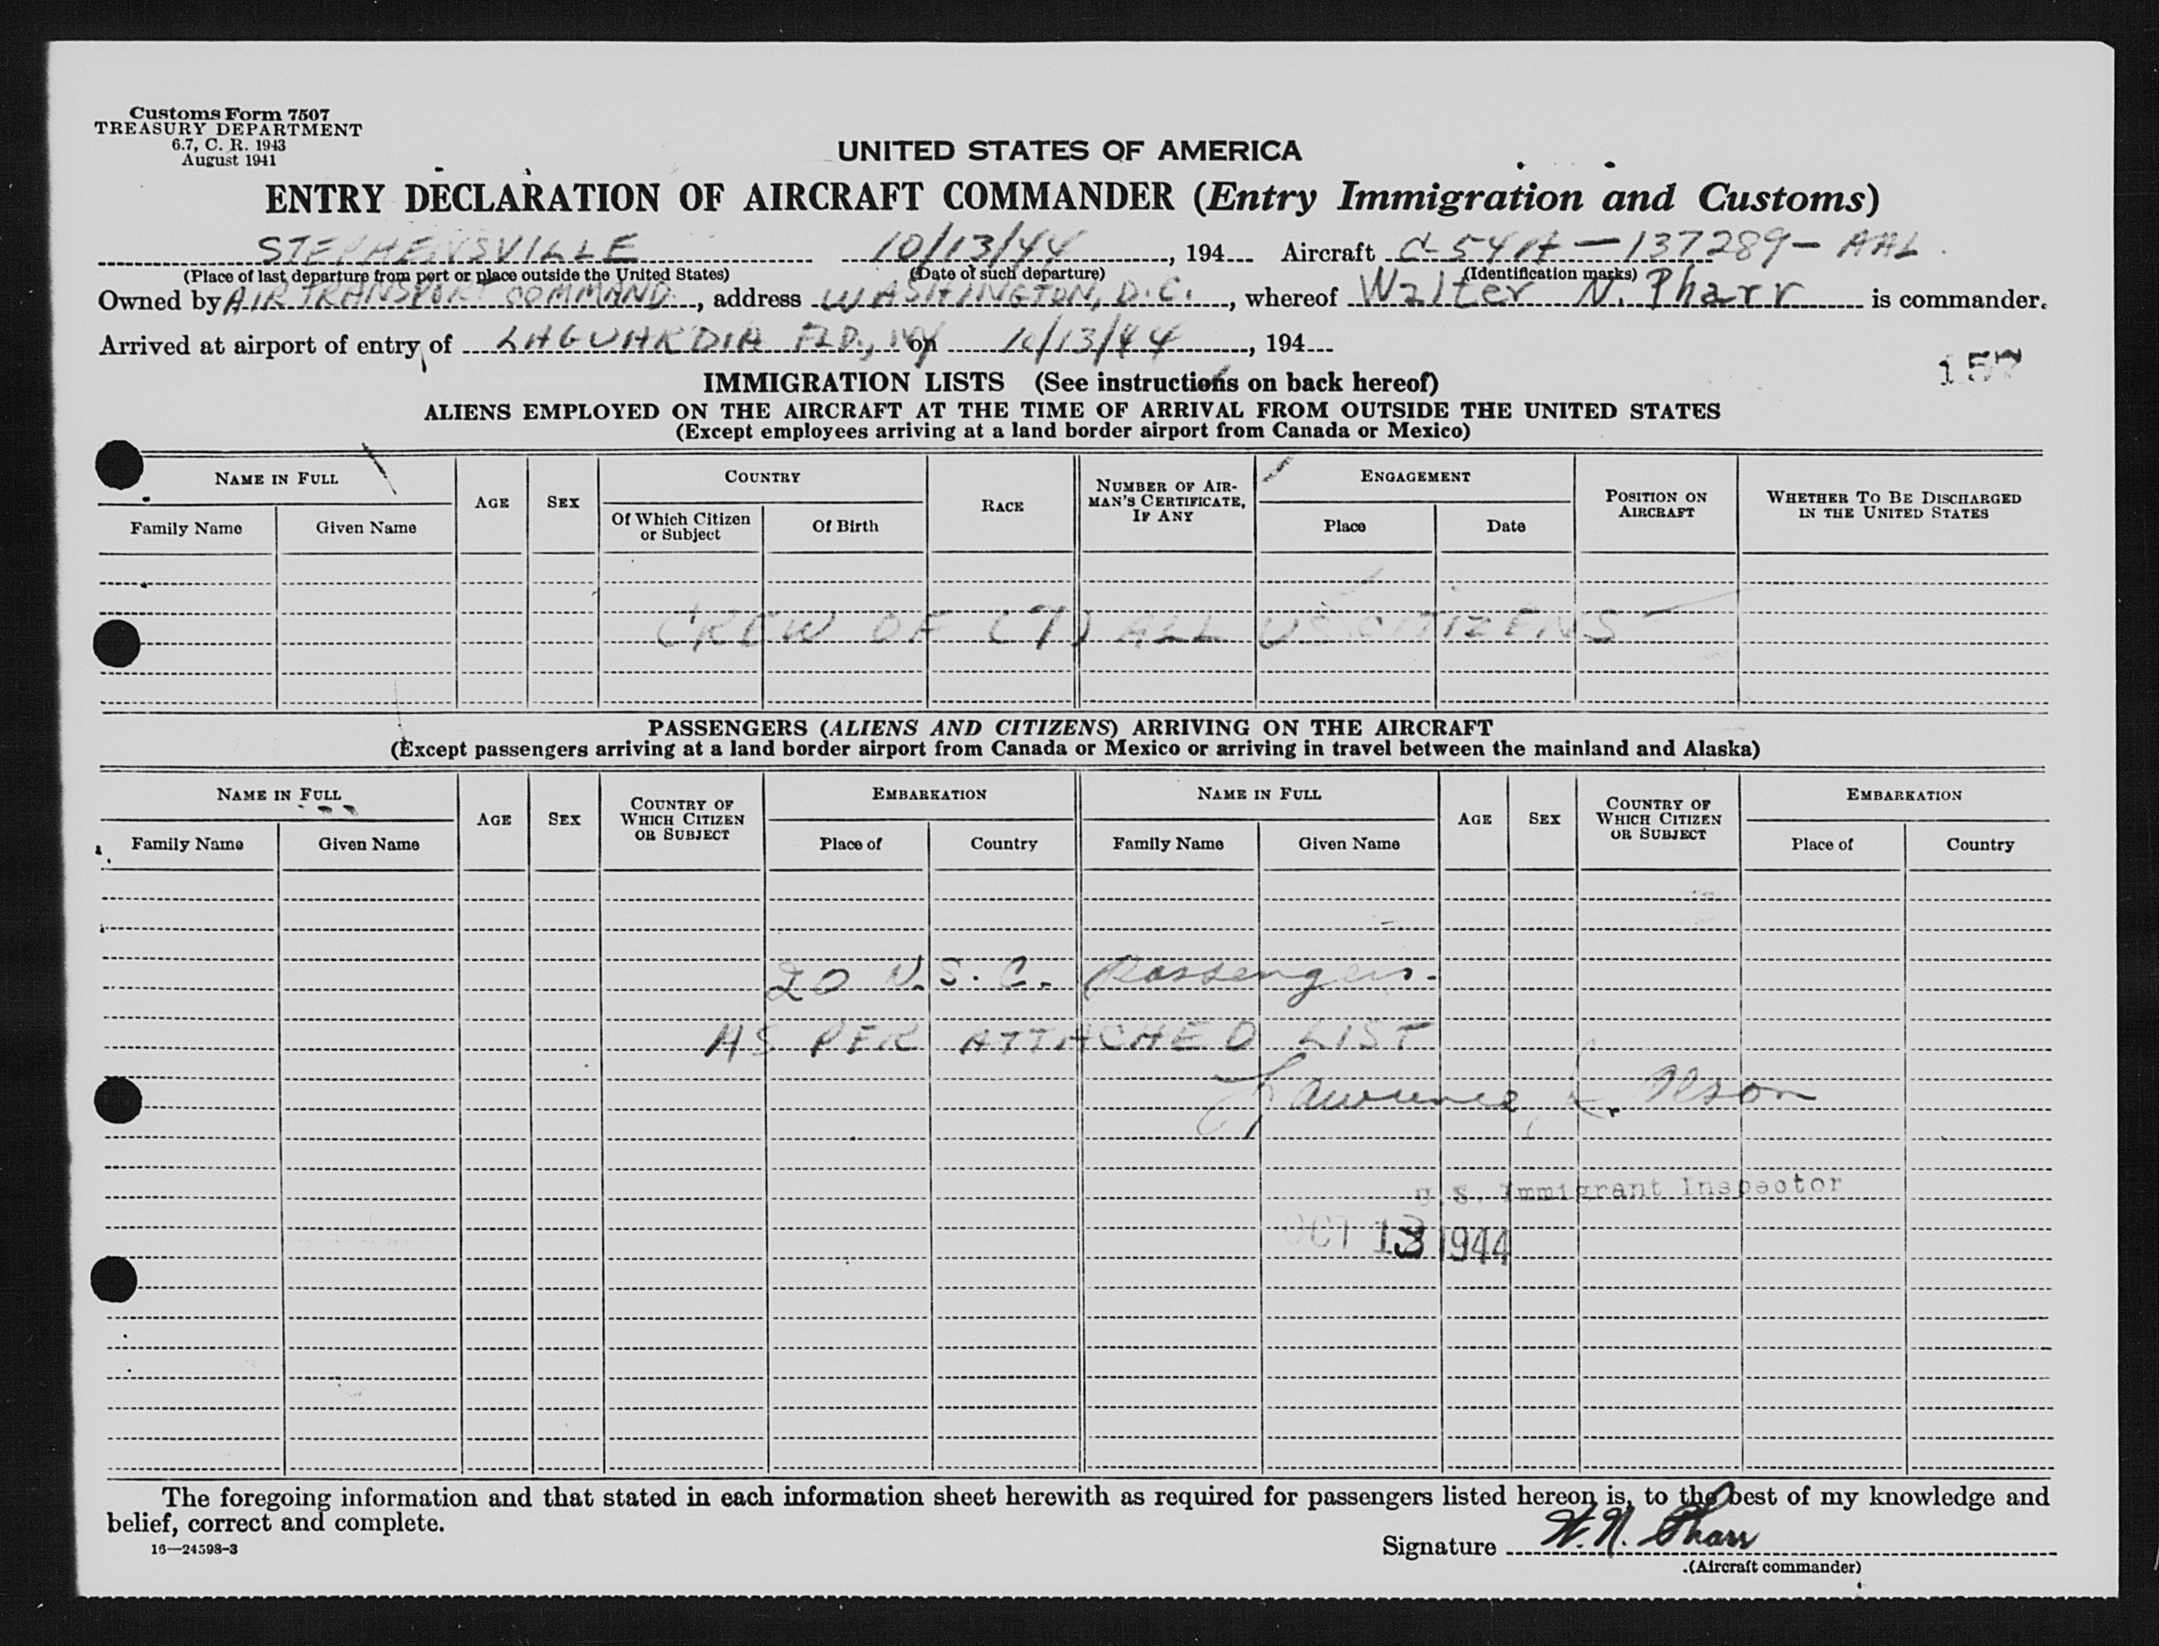 Customs Form 7507
TREASURY DEPARTMENT
6.7, C. R. 1943
August 1941
UNITED STATES OF AMERICA
ENTRY DECLARATION OF AIRCRAFT COMMANDER (Entry Immigration and Customs)
STEPHENSVILLE 10/13/44, 194 Aircraft C-54A-137289-AAL
(Place of last departure from port or place outside the United States) (Date of such departure) (Identification marks)
Owned by AIR TRANSPORT COMMAND, address WASHINGTON, D.C., whereof Walter N. Pharr is commander.
Arrived at airport of entry of LAGUARDIA FLD., NY on 10/13/44, 194
157
IMMIGRATION LISTS (See instructions on back hereof)
ALIENS EMPLOYED ON THE AIRCRAFT AT THE TIME OF ARRIVAL FROM OUTSIDE THE UNITED STATES
(Except employees arriving at a land border airport from Canada or Mexico)
NAME IN FULL AGE SEX COUNTRY RACE NUMBER OF AIRMAN'S CERTIFICATE, IF ANY ENGAGEMENT POSITION ON AIRCRAFT WHETHER TO BE DISCHARGED IN THE UNITED STATES
Family Name Given Name Of Which Citizen or Subject Of Birth Place Date
CREW OF (7) ALL US CITIZENS
PASSENGERS (ALIENS AND CITIZENS) ARRIVING ON THE AIRCRAFT
(Except passengers arriving at a land border airport from Canada or Mexico or arriving in travel between the mainland and Alaska)
NAME IN FULL AGE SEX COUNTRY OF WHICH CITIZEN OR SUBJECT EMBARKATION NAME IN FULL AGE SEX COUNTRY OF WHICH CITIZEN OR SUBJECT EMBARKATION
Family Name Given Name Place of Country Family Name Given Name Place of Country
20 U.S.C. Passengers.
AS PER ATTACHED LIST
Lawrence
U.S. Immigrant Inspector
OCT 13 1944
The foregoing information and that stated in each information sheet herewith as required for passengers listed hereon is, to the best of my knowledge and
belief, correct and complete.
16—24598-3
Signature W. N. Pharr
(Aircraft commander)